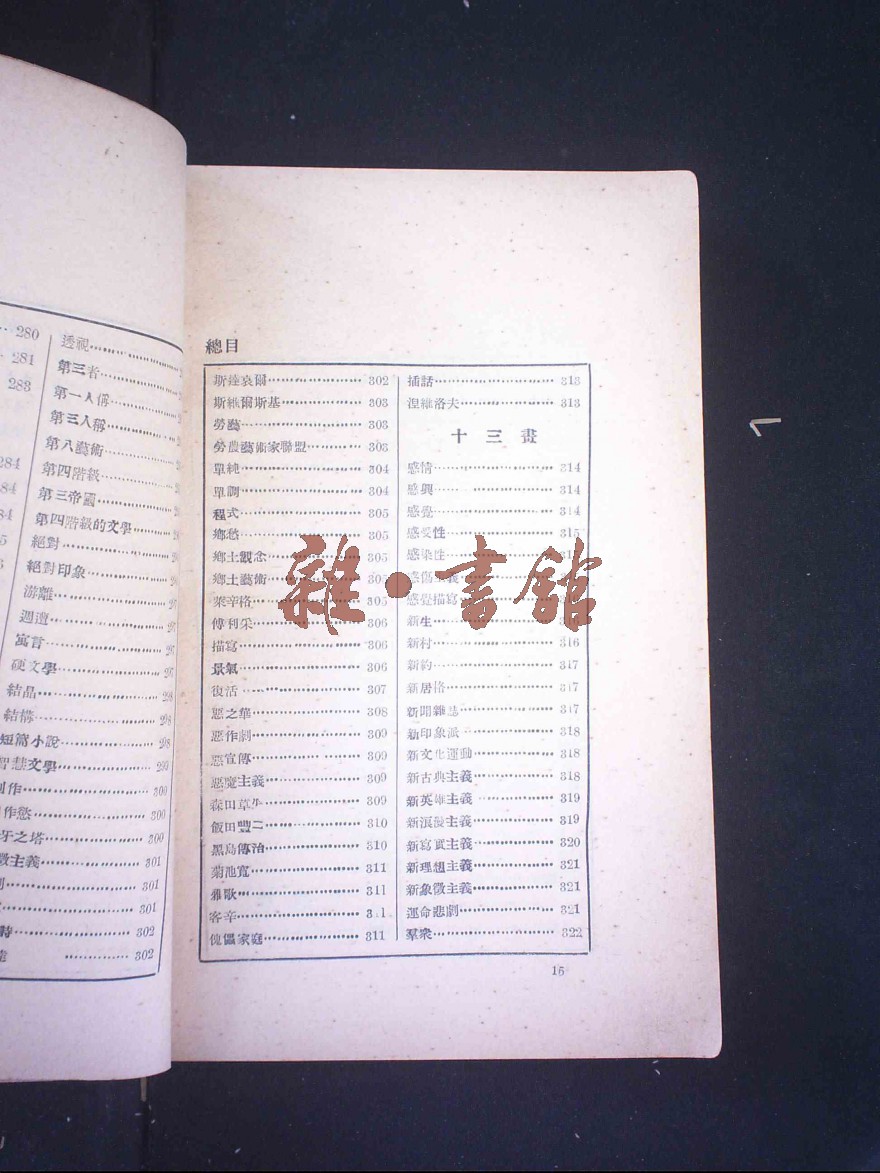 280
281
283
284
透視
第三者
第一人稱
第三人稱
第八藝術
第四階級
第三帝國
第四階級的文學
絕對
絕對印象
游離
週遭
寓言
硬文學
結晶
結構
短篇小說
智慧文學 299
創作 300
作慾 300
牙之塔 300
徵主義 301
301
301
詩 302
302
總目
斯達哀爾 302
斯維爾斯基 303
勞藝 303
勞農藝術家聯盟 303
單純 304
單調 304
程式 305
鄉愁 305
鄉土觀念 305
鄉土藝術
萊辛格 305
傅利采 306
描寫 306
景氣 306
復活 307
惡之華 308
惡作劇 309
惡宣傳 309
惡魔主義 309
森田草牛 309
飯田豐二 310
黑島傳治 310
菊池寬 311
雅歌 311
客辛
傀儡家庭 311
插話 313
涅維洛夫 313
十三畫
感情 314
感興 314
感覺 314
感受性 315
感染性
感傷主義
感覺描寫
新生
新村 316
新約 317
新居格 317
新聞雜誌 317
新印象派 318
新文化運動 318
新古典主義 318
新英雄主義 319
新浪漫主義 319
新寫實主義 320
新理想主義 321
新象徵主義 321
運命悲劇 321
羣衆 322
16
雜·書館